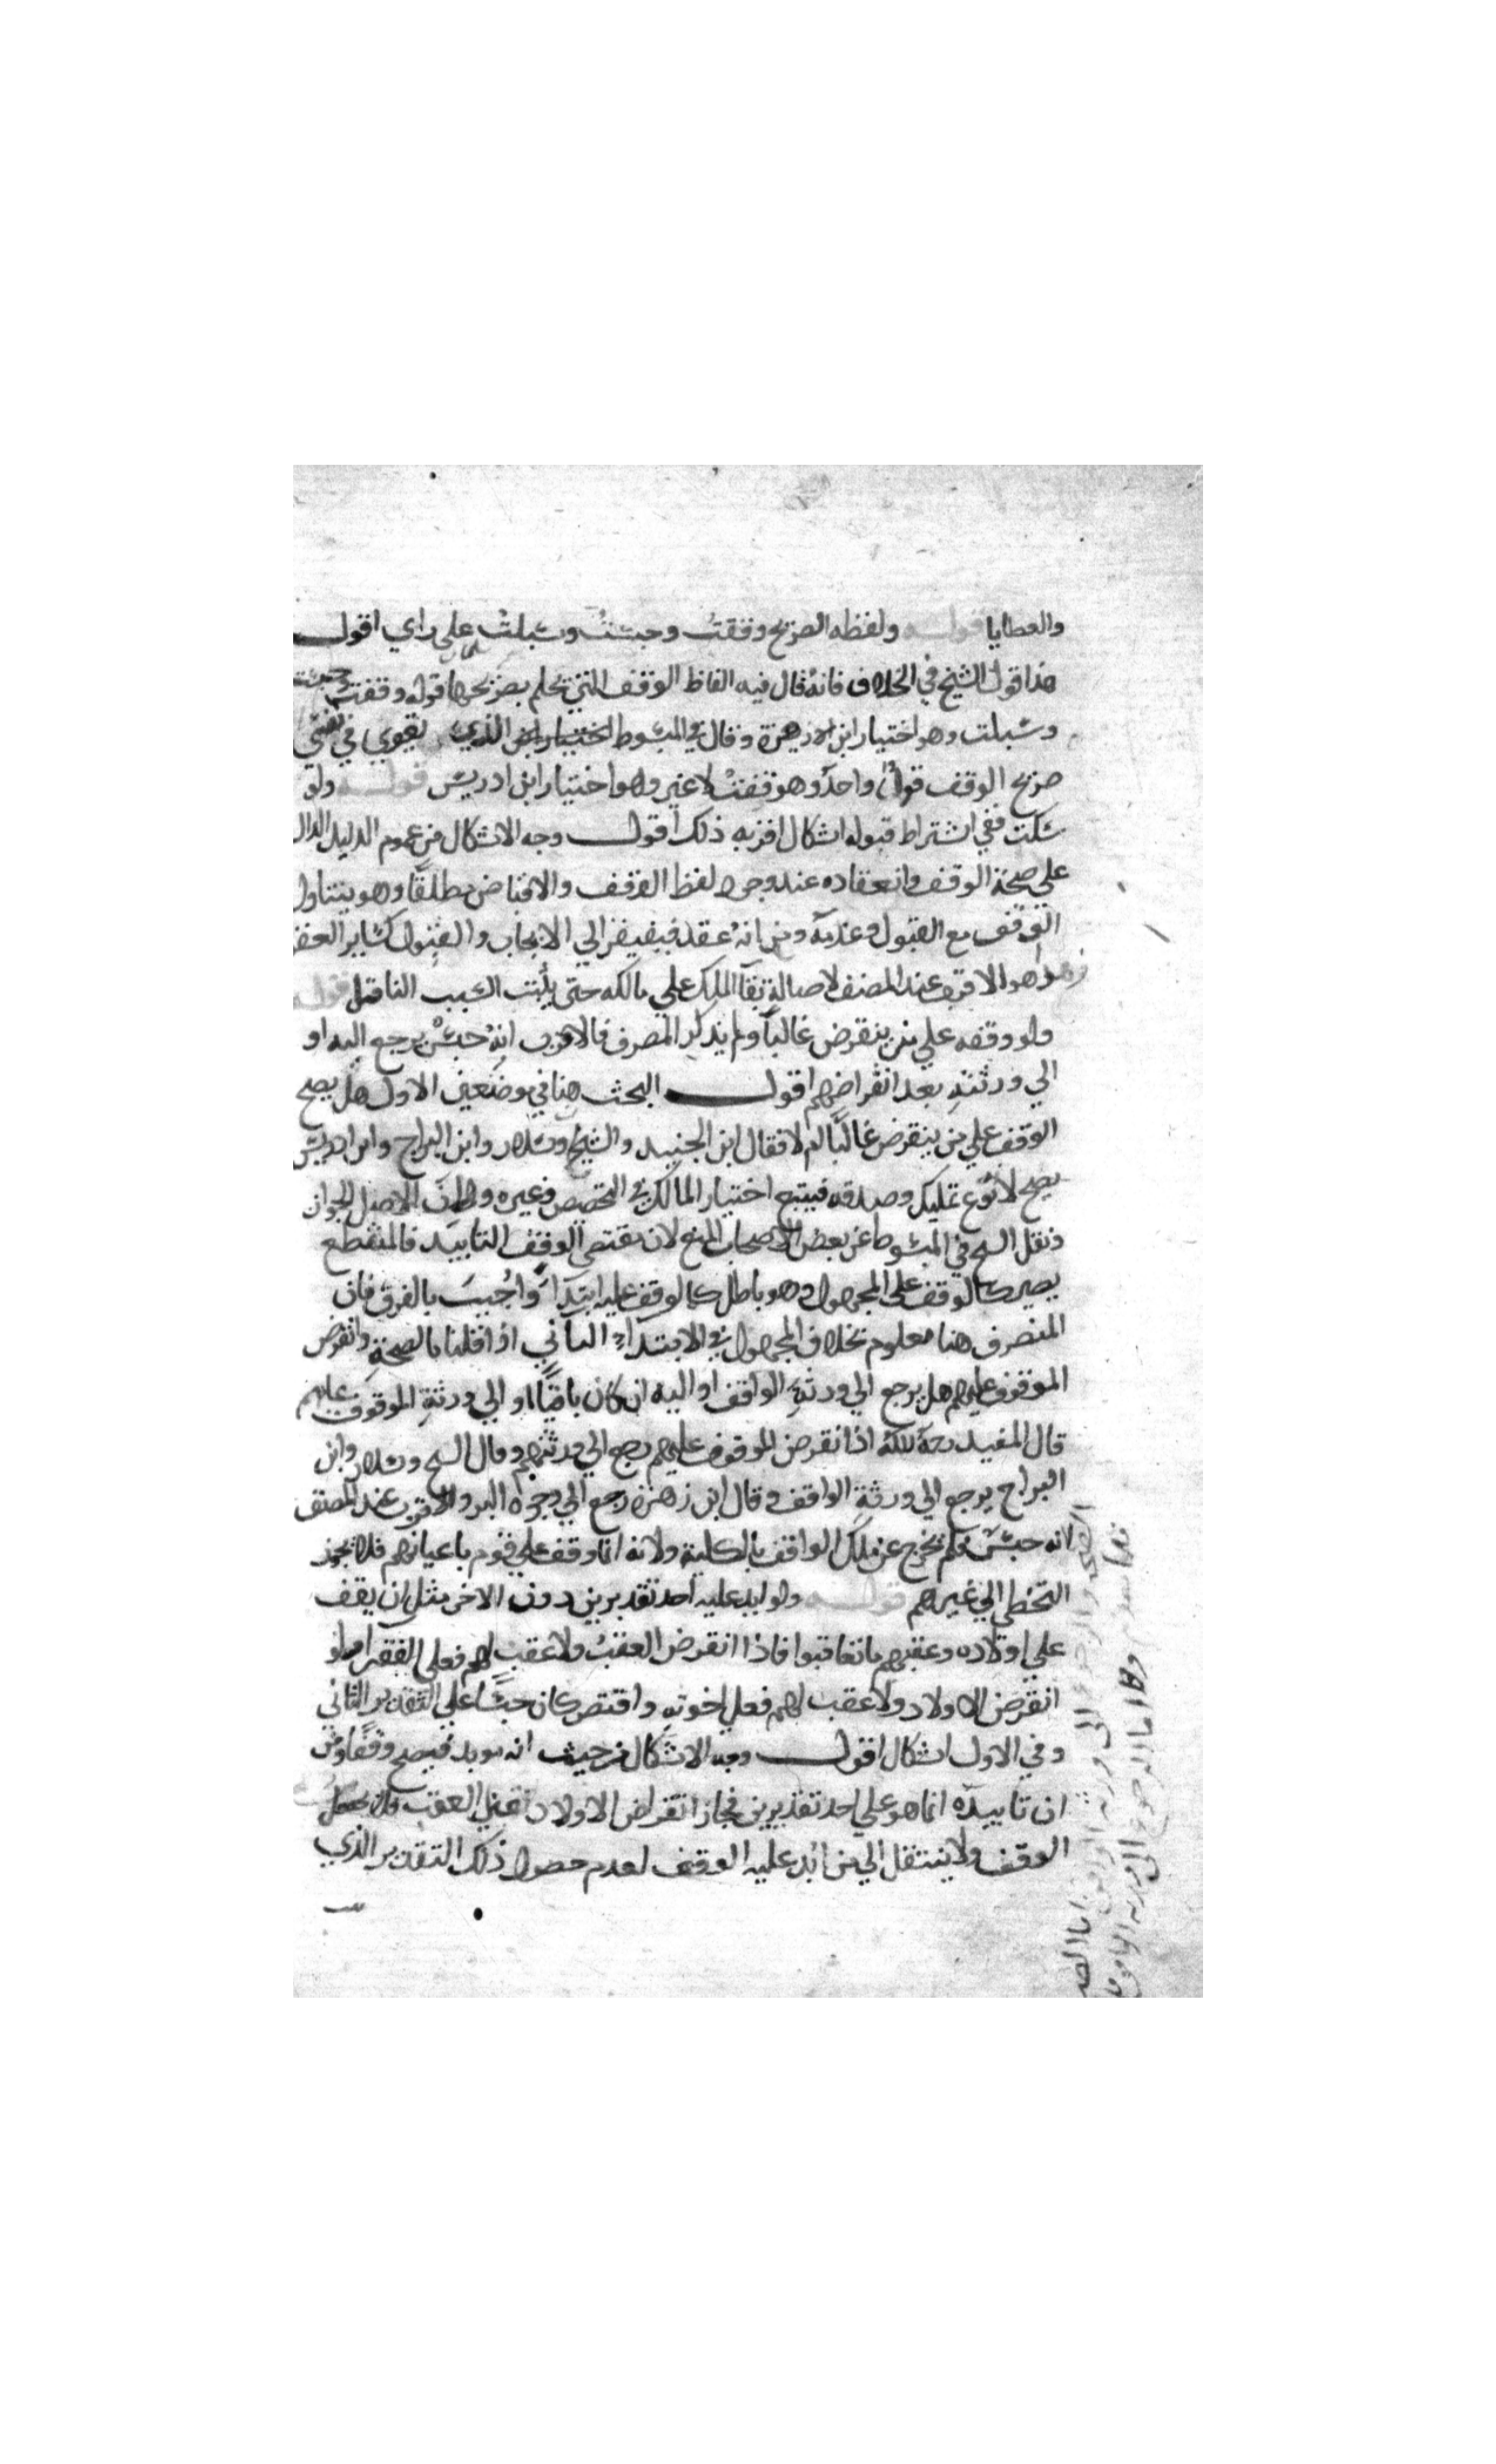 والعطايا قوله ولفظه الصريح وقفت وحبست وسبلت علي راي اقول
هذا قول الشيخ في الخلاف فانه قال فيه الفاظ الوقف التي يحكم بصريحها قوله وقفت وحبست
وسبلت وهو اختيار ابن زهرة وقال في المبسوط الذي يقوي في نفسي
صريح الوقف قولا واحدا وهو وقفت لا غير وهو اختيار ابن ادريس قوله ولو
سكت ففي اشتراط قبوله اشكال اقربه ذلك اقول وجه الاشكال من عموم الدليل الدال
علي صحة الوقف وانعقاده عند وجود لفظ الوقف والاقباض مطلقا وهو يتناول
الوقف مع القبول وعدمه ومن انه عقد فيفتقر الي الايجاب والقبول كساير العقود
وهذا هو الاقرب عند المصنف لاصالة بقآ الملك علي مالكه حتي يثبت السبب الناقل قوله
ولو وقفه علي من ينقرض غالبا ولم يذكر المصرف فالاقرب انه حبس يرجع اليه او
الي ورثته بعد انقراضهم اقول البحث هنا في موضعين الاول هل يصح
الوقف علي من ينقرض غالبا ام لا فقال ابن الجنيد والشيخ وسلار وابن البراج وابن ادريس
يصح لانه نوع تمليك وصدقه فيتبع اختيار المالك في التخصيص وغيره ولان الاصل الجواز
ونقل الشيخ في المبسوط عن بعض الاصحاب المنع لان مقتضي الوقف التابيد فالمنقطع
يصير كالوقف علي المجهول وهو باطل كالوقف عليه ابتدآ واجيب بالفرق فان
المنصرف هنا معلوم بخلاف المجهول في الابتداء الثاني اذا قلنا بالصحة وانقرض
الموقوف عليهم هل يرجع الي ورثة الواقف او اليه ان كان باقيا او الي ورثة الموقوف عليهم
قال المفيد رحمه الله اذا انقرض الموقوف عليهم رجع الي ورثتهم وقال الشيخ وسلار وابن
البراج يرجع الي ورثة الواقف وقال ابن زهرة رجع الي وجوه البر والاقرب عند المصنف
لانه حبس فلم يخرج عن ملك الواقف بالكلية ولانه انما وقف علي قوم باعيانهم فلا يجوز
التخطي الي غيرهم قوله ولو ابد عليه احد تقديرين دون الاخر مثل ان يقف
علي اولاده وعقبهم ما تعاقبوا فاذا انقرض العقب ولا عقب لهم فعلي الفقرا ولو
انقرض الاولاد ولا عقب لهم فعلي اخوته واقتصر كان حبسا علي التقدير الثاني
وفي الاول اشكال اقول وجه الاشكال من حيث انه موبد فيصح وقفا ومن
ان تابيده انما هو علي احد تقديرين فجاز انقراض الاولاد العقب
الوقف ولا ينتقل الي من ابد عليه الوقف لعدم حصول ذلك التقدير الذي